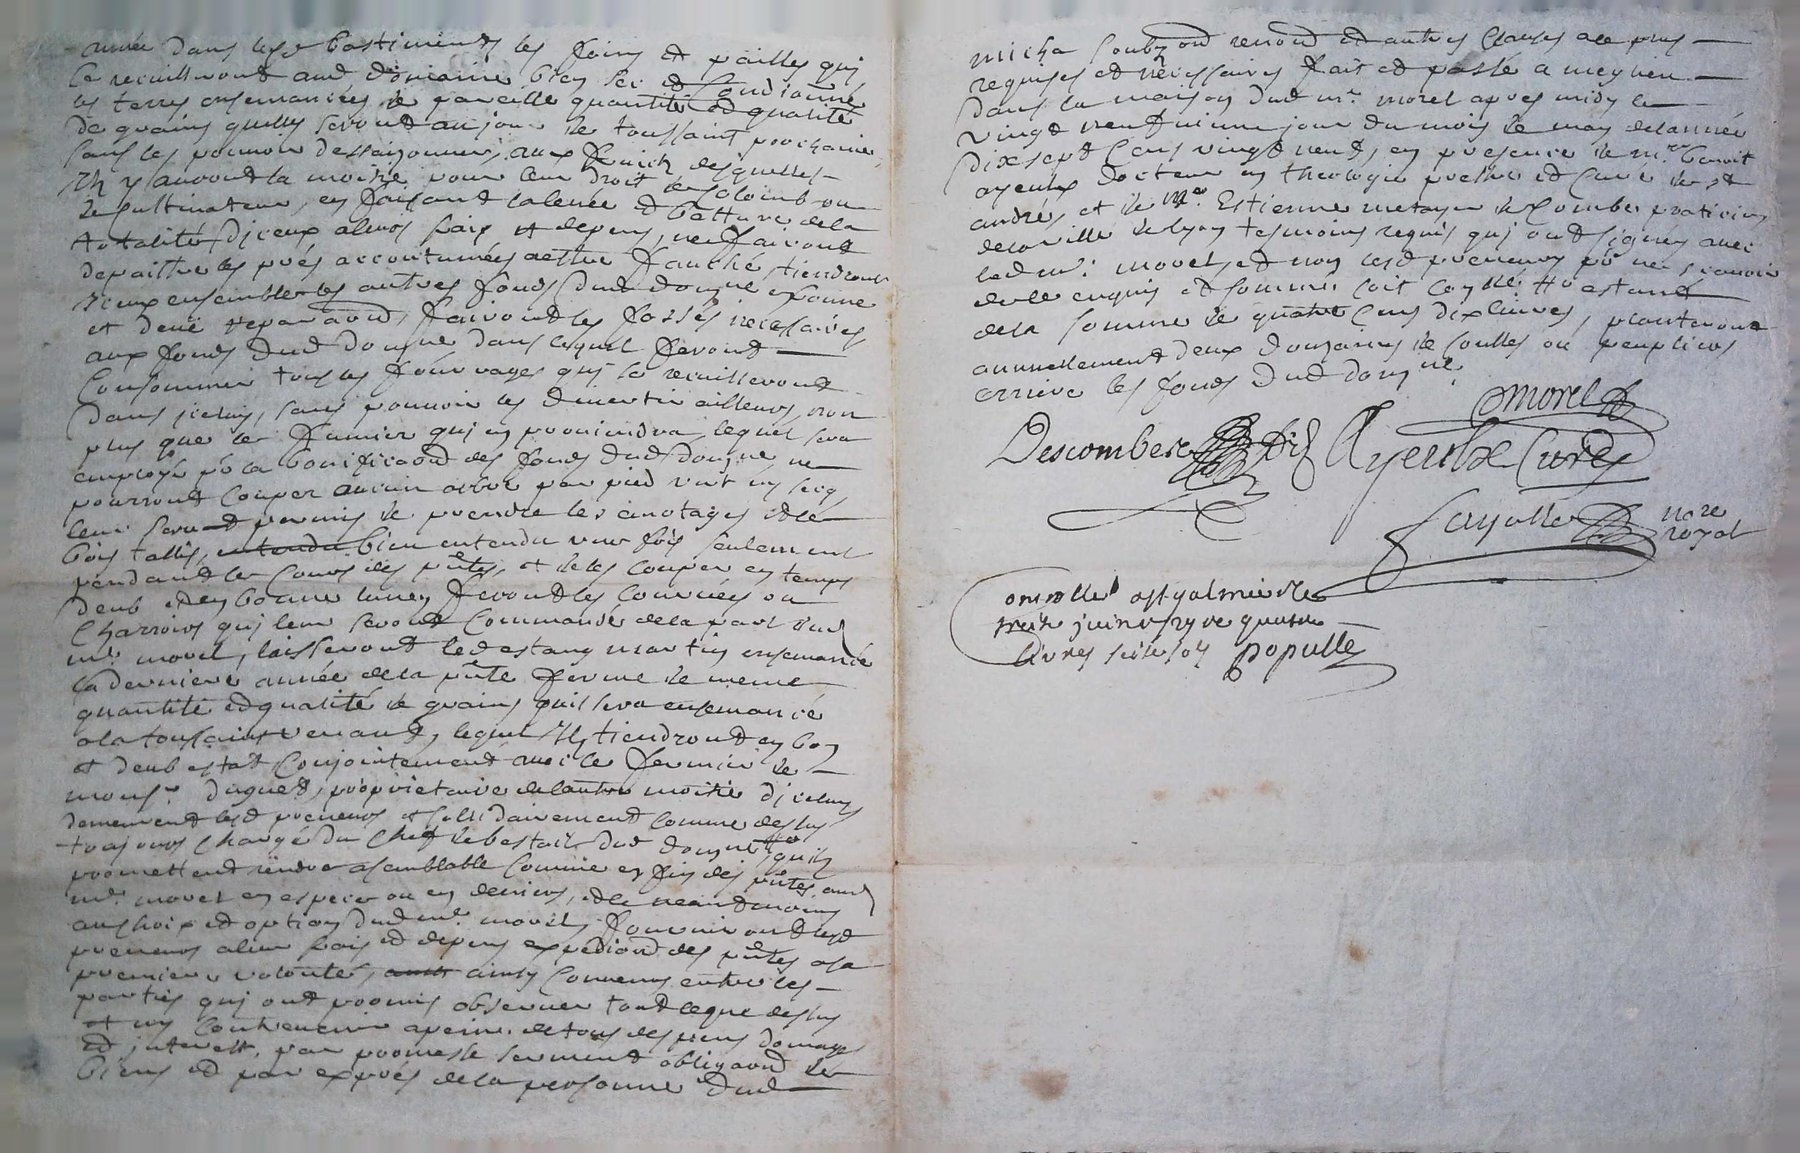 année dans lesd bastiments les foins et pailles qui
se recuilliront aud domaine bien sec et condicionné
les terres ensemancées de pareille quantité et qualité
de grains quelles seront au jour de toussaint prochaine,
sans les pouvoir dessaizonner, aux fruicts desquelles
Ils y auront la moitié pour leur droit de colomb ou
de cultivateur, en faisant la levée et batture de la
totalité d'iceux a leurs frais et depens, ne fairont
depaistre les prés accoutumées aestre fauché, tiendront
iceux ensemble les autres fonds dud domne en bonne
et deuë reparaōn, fairont les fossés necessaires
aux fonds dud domne dans lequel feront
Consommer tous les fourrages qui se recuilleront
dans iceluy, sans pouvoir les divertir ailleurs, non
plus que le fumier qui en proviendra, lequel sera
employé pr la bonificaōn des fonds dud domne, ne
pourront couper aucun arbre par pied vert ny secq,
leur sera permis de prendre les emotages et le
bois tallis, entendu bien entendu une fois seulement
pendant le cours des pntes, et de les couper en temps
deub et en bonne lune, feront les courvées ou
Charrois qui leur seront commandé de la part dud
mr morel, laisseront led estang martin ensemancé
la derniere année de la pnte ferme de meme
quantité et qualité de grains quil sera ensemancé
a la toussaint venant, lequel Ils tiendront en bon
et deub estat conjointement avec le fermier de
monsr duguet, proprietaire de lautre moitié d'iceluy
demeurent lesd preneurs et solidairement comme dessus
toujours chargé du chef de bestail dud domne quils
promettent rendre a semblable comme en fin des pntes aud
mr morel en espece ou en deniers, et le neantmoins
au choix et option dud mr morel, fourniront lesd
preneurs a leur frais et depens expediōn des pntes a sa
premiere volonté, ainsy convenus entre les
parties qui ont promis observer tout ce que dessus
et ny contrevenir a peine de tous despens domages
et interest, par promesse serment obligaōn de
biens et par exprés de la personne dud
micha soubz ōn renonōn et autres clauses a ce plus
requises et necessaires fait et passé a meylieu
dans la maison dud mr morel apres midy le
vingt neufvieme jour du mois de may de lannée
dix sept cens vingt neuf, en presence de mre benoit
ayeulx docteur en theologie prestre et curé de st
andré, et de Me Estienne metayer descombes praticien
de la ville de lyon tesmoins requis qui ont signés avec
led mr morel, et non lesd preneurs pr ne scavoir
de ce enquis et sommés soit conlé estant
de la somme de quatre cens dix livres, planteront
annuellement deux douzaines de soulles ou peupliers
arriere les fonds dud domne
morel
Descombes Ayeulx Curé
fayolle nore
royal
onrolle a st galmier le
treize juin 1729 re quatre
livres seize sols populle